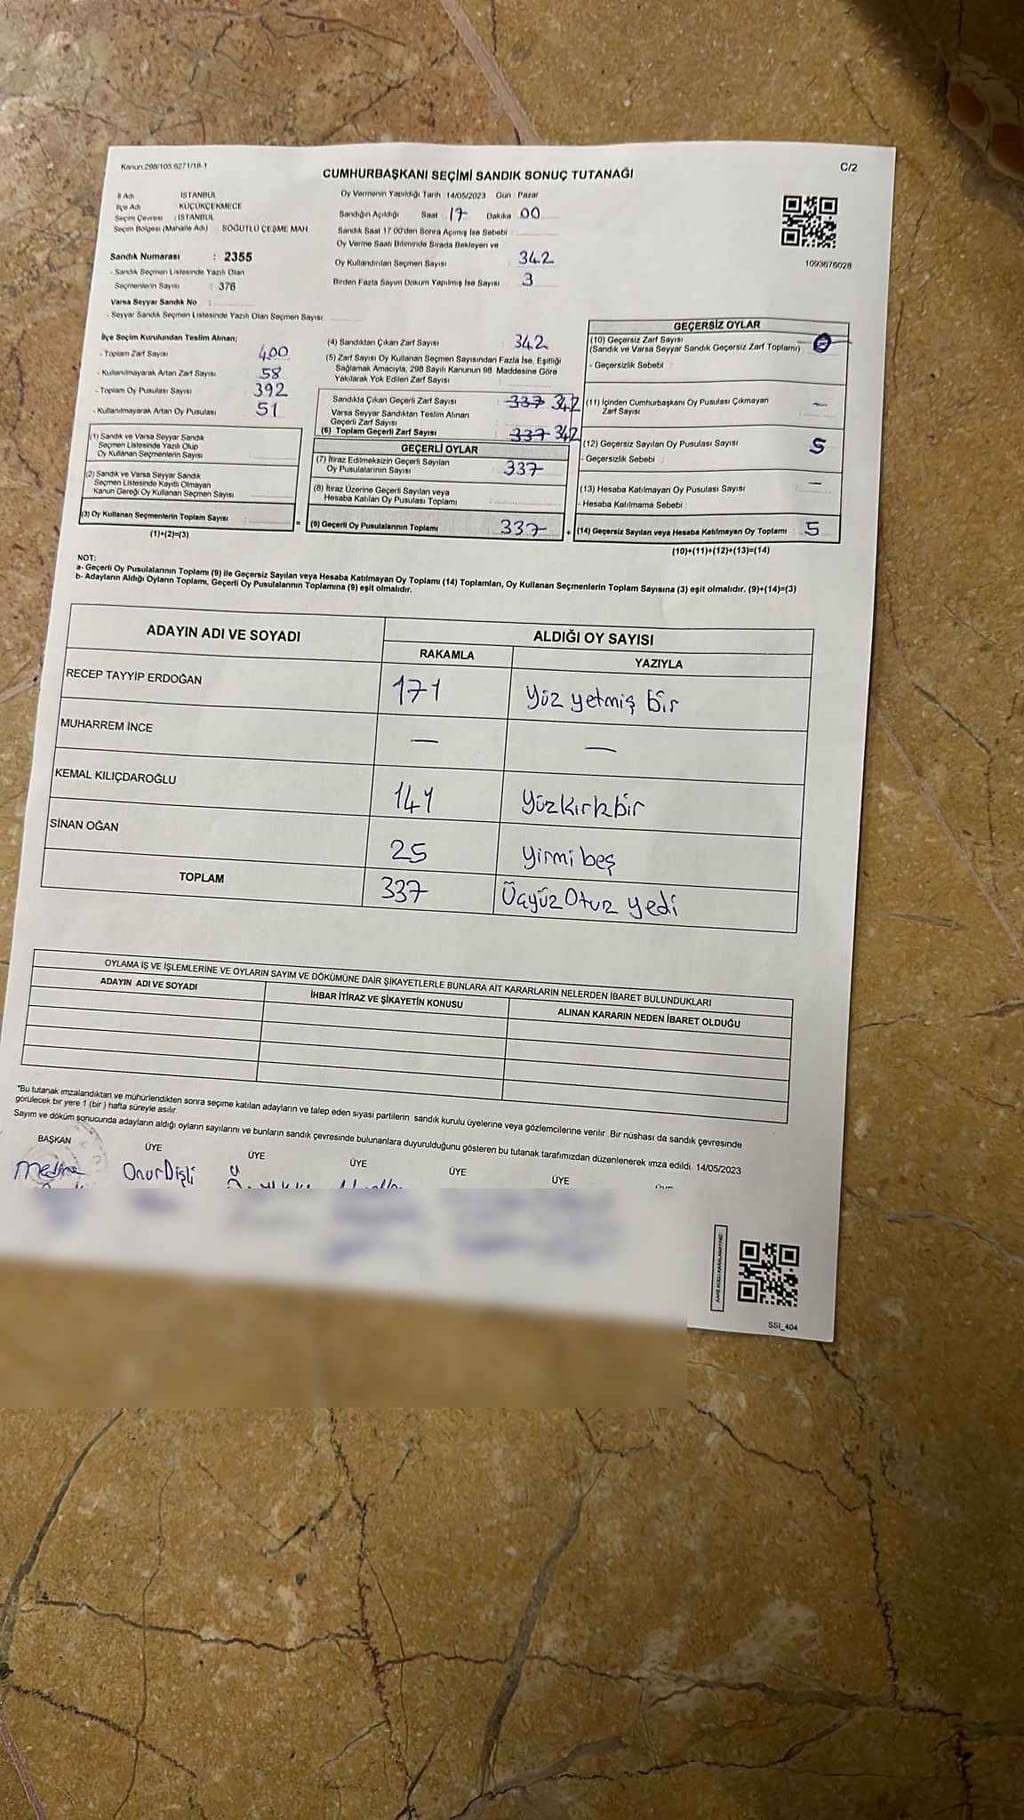 Kanun:298/105 6271/18-1
CUMHURBAŞKANI SEÇİMİ SANDIK SONUÇ TUTANAĞI
C/2
İl Adı : İSTANBUL
İlçe Adı KÜÇÜKÇEKMECE
Seçim Çevresi : İSTANBUL
Seçim Bölgesi (Mahalle Adı) SÖĞÜTLÜ ÇEŞME MAH
Sandık Numarası : 2355
- Sandık Seçmen Listesinde Yazılı Olan
Seçmenlerin Sayısı : 376
Varsa Seyyar Sandık No :
- Seyyar Sandık Seçmen Listesinde Yazılı Olan Seçmen Sayısı
Oy Vermenin Yapıldığı Tarih : 14/05/2023 Gün : Pazar
Sandığın Açıldığı Saat 17 Dakika 00
Sandık Saat 17 00'den Sonra Açımış İse Sebebi :
Oy Verme Saati Bitiminde Sırada Bekleyen ve
Oy Kullandırılan Seçmen Sayısı 342
Birden Fazla Sayım Döküm Yapılmış İse Sayısı 3
1093676028
İlçe Seçim Kurulundan Teslim Alınan;
- Toplam Zarf Sayısı 400
- Kullanılmayarak Artan Zarf Sayısı 58
- Toplam Oy Pusulası Sayısı 392
- Kullanılmayarak Artan Oy Pusulası 51
(1) Sandık ve Varsa Seyyar Sandık
Seçmen Listesinde Yazılı Olup
Oy Kullanan Seçmenlerin Sayısı
(2) Sandık ve Varsa Seyyar Sandık
Seçmen Listesinde Kayıtlı Olmayan
Kanun Gereği Oy Kullanan Seçmen Sayısı
(3) Oy Kullanan Seçmenlerin Toplam Sayısı
(1)+(2)=(3)
(4) Sandıktan Çıkan Zarf Sayısı 342
(5) Zarf Sayısı Oy Kullanan Seçmen Sayısından Fazla İse, Eşitliği
Sağlamak Amacıyla, 298 Sayılı Kanunun 98 Maddesine Göre
Yakılarak Yok Edilen Zarf Sayısı
Sandıkta Çıkan Geçerli Zarf Sayısı 337 342
Varsa Seyyar Sandıktan Teslim Alınan
Geçerli Zarf Sayısı
(6) Toplam Geçerli Zarf Sayısı 337 342
GEÇERLİ OYLAR
(7) İtiraz Edilmeksizin Geçerli Sayılan
Oy Pusulalarının Sayısı 337
(8) İtiraz Üzerine Geçerli Sayılan veya
Hesaba Katılan Oy Pusulası Toplamı
= (9) Geçerli Oy Pusulalarının Toplamı 337
GEÇERSİZ OYLAR
(10) Geçersiz Zarf Sayısı
(Sandık ve Varsa Seyyar Sandık Geçersiz Zarf Toplamı)
- Geçersizlik Sebebi :
(11) İçinden Cumhurbaşkanı Oy Pusulası Çıkmayan
Zarf Sayısı —
(12) Geçersiz Sayılan Oy Pusulası Sayısı 5
- Geçersizlik Sebebi :
(13) Hesaba Katılmayan Oy Pusulası Sayısı —
- Hesaba Katılmama Sebebi :
+ (14) Geçersiz Sayılan veya Hesaba Katılmayan Oy Toplamı : 5
(10)+(11)+(12)+(13)=(14)
NOT:
a- Geçerli Oy Pusulalarının Toplamı (9) ile Geçersiz Sayılan veya Hesaba Katılmayan Oy Toplamı (14) Toplamları, Oy Kullanan Seçmenlerin Toplam Sayısına (3) eşit olmalıdır. (9)+(14)=(3)
b- Adayların Aldığı Oyların Toplamı, Geçerli Oy Pusulalarının Toplamına (9) eşit olmalıdır.
ADAYIN ADI VE SOYADI ALDIĞI OY SAYISI
RAKAMLA YAZIYLA
RECEP TAYYİP ERDOĞAN 171 Yüz yetmiş bir
MUHARREM İNCE — —
KEMAL KILIÇDAROĞLU 141 Yüzkırkbir
SİNAN OĞAN 25 Yirmi beş
TOPLAM 337 Üçyüz Otuz yedi
OYLAMA İŞ VE İŞLEMLERİNE VE OYLARIN SAYIM VE DÖKÜMÜNE DAİR ŞİKAYETLERLE BUNLARA AİT KARARLARIN NELERDEN İBARET BULUNDUKLARI
ADAYIN ADI VE SOYADI İHBAR İTİRAZ VE ŞİKAYETİN KONUSU ALINAN KARARIN NEDEN İBARET OLDUĞU
"Bu tutanak imzalandıktan ve mühürlendikten sonra seçime katılan adayların ve talep eden siyasi partilerin sandık kurulu üyelerine veya gözlemcilerine verilir Bir nüshası da sandık çevresinde
görülecek bir yere 1 (bir) hafta süreyle asılır.
Sayım ve döküm sonucunda adayların aldığı oyların sayılarını ve bunların sandık çevresinde bulunanlara duyurulduğunu gösteren bu tutanak tarafımızdan düzenlenerek imza edildi 14/05/2023
BAŞKAN ÜYE ÜYE ÜYE ÜYE ÜYE
Onur Dişli
SSI_404